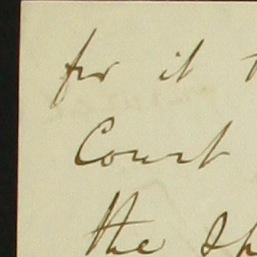 for it
Court
the